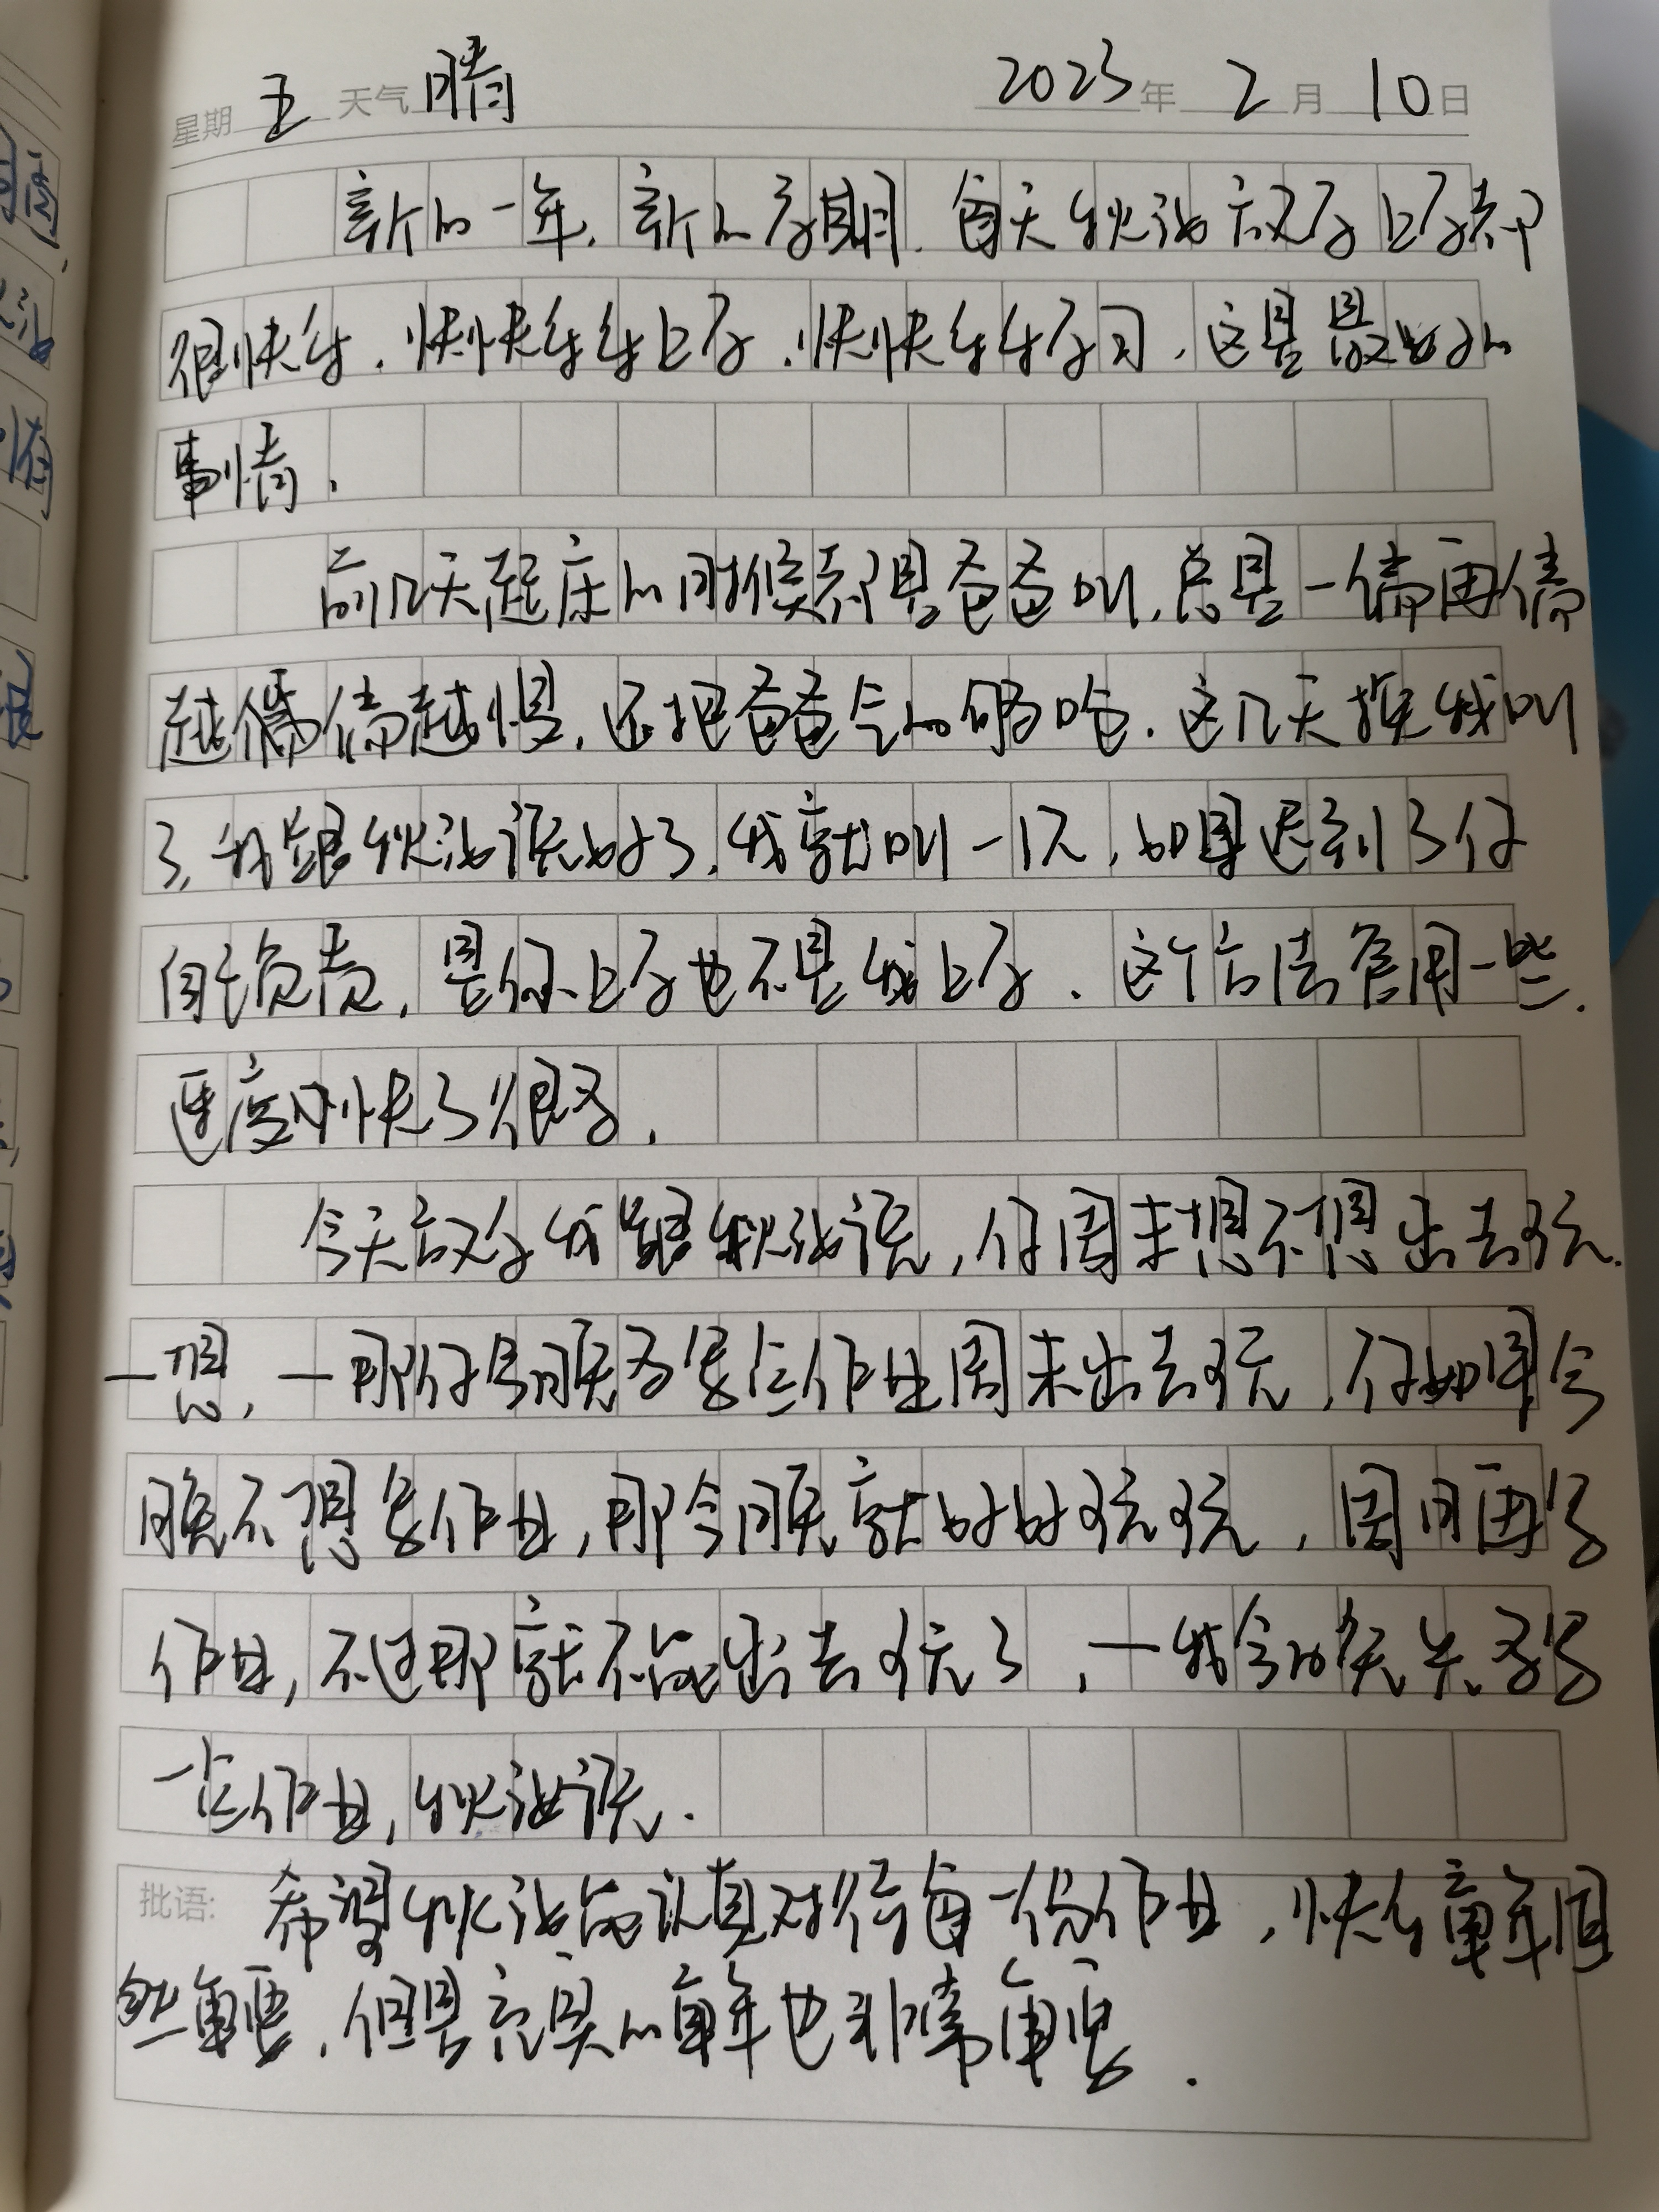 星期 五 天气 晴 2023年 2月 10日
新的一年,新的学期,每天秋泓放学上学都
很快乐,快快乐乐上学,快快乐乐学习,这是最好的
事情.
前几天起床的时候都是爸爸叫,总是一催再催
越催催越慢,还把爸爸气的够呛.这几天换我叫
了,我跟秋泓说好了,我就叫一次,如果迟到了你
自己负责,是你上学也不是我上学.这个方法管用一些.
速度快了很多.
今天放学我跟秋泓说,你周末想不想出去玩.
一想,一那你今晚多写些作业周末出去玩,你如果今
晚不想写作业,那今晚就好好玩玩,周日再写
作业,不过那就不能出去玩了,一我今晚先多写
一些作业,秋泓说.
批语: 希望秋泓能认真对待每一份作业,快乐童年固
然重要,但是充实的童年也非常重要.